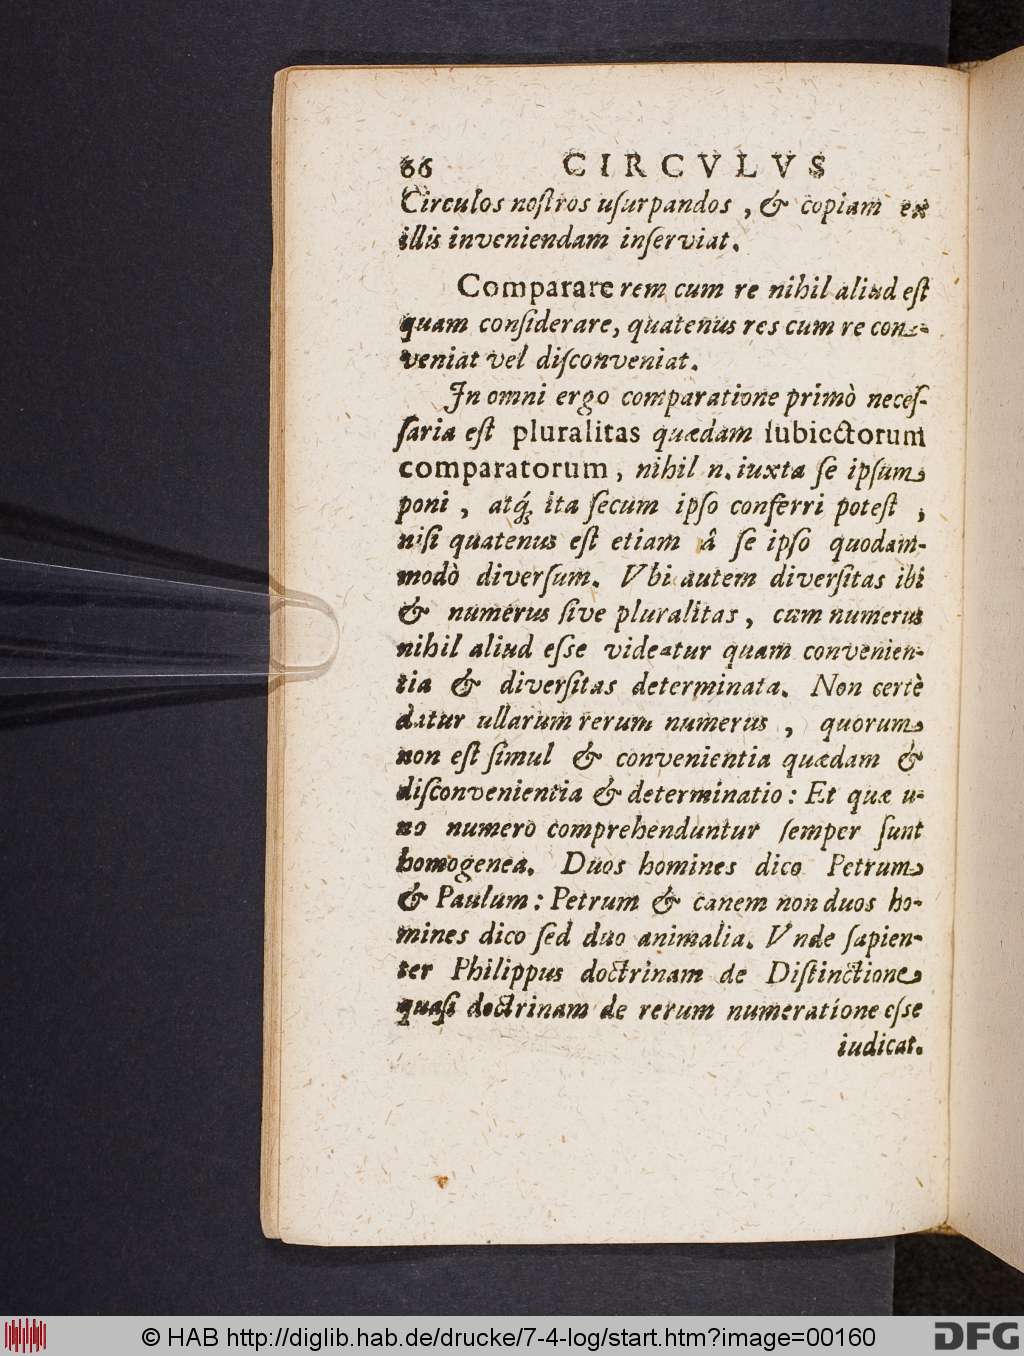 66 CIRCVLVS
Circulos noſtros uſurpandos, & copiam ex
illis inveniendam inſerviat.
Comparare rem cum re nihil aliud eſt
quam conſiderare, quatenus res cum re con-
veniat vel diſconveniat.
In omni ergo comparatione primò neceſ-
ſaria eſt pluralitas quædam ſubiectorum
comparatorum, nihil n. iuxta ſe ipſum
poni, atq́; ita ſecum ipſo conferri poteſt,
niſi quatenus eſt etiam â ſe ipſo quodam-
modò diverſum. Vbi autem diverſitas ibi
& numerus ſive pluralitas, cum numerus
nihil aliud eſse videatur quam convenien-
tia & diverſitas determinata. Non certè
datur ullarum rerum numerus, quorum
non eſt ſimul & convenientia quædam &
diſconvenientia & determinatio: Et quæ u-
no numero comprehenduntur ſemper ſunt
homogenea. Duos homines dico Petrum
& Paulum: Petrum & canem non duos ho-
mines dico ſed duo animalia. Vnde ſapien-
ter Philippus doctrinam de Diſtinctione
quaſi doctrinam de rerum numeratione eſse
iudicat.
© HAB http://diglib.hab.de/drucke/7-4-log/start.htm?image=00160
DFG